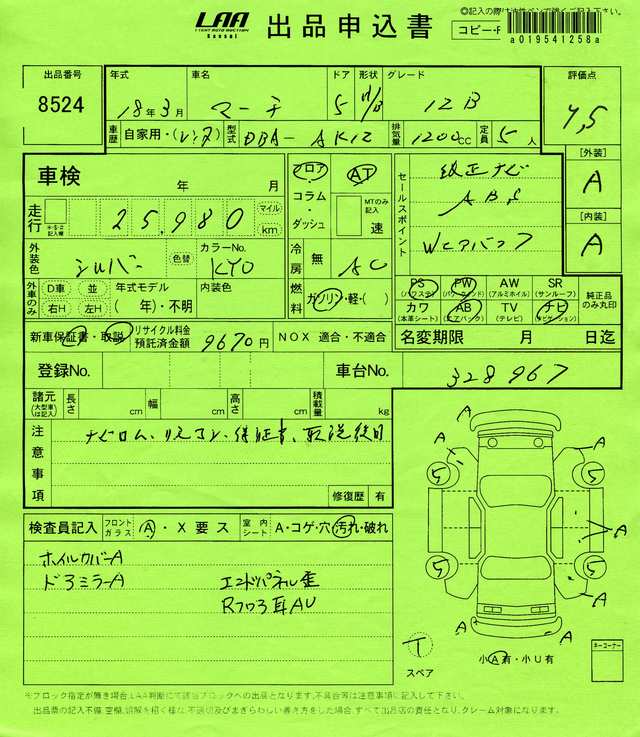 LAA
出品申込書
a019541258a
出品番号
8524
年式 車名 ドア 形状 グレード
18年3月 マーチ 5 H/B 12B
評価点
4,5
車歴 自家用・(レンタ) 型式 DBA- AK12 排気量 1200cc 定員 5人
[外装]
A
[内装]
A
車検 年 月
フロア コラム ダッシュ
AT
MTのみ記入
速
セールスポイント
純正ナビ
ABS
Wエアバッグ
走行 25,980 マイル km
外装色 シルバー 色替 カラーNo. KY0
冷房 無 AC
外車のみ D車 並 右H 左H 年式モデル ( 年)・不明 内装色
燃料 ガソリン・軽・( )
PS (パワステ) PW (パワーウィンド) AW (アルミホイル) SR (サンルーフ) 純正品のみ丸印
カワ (本革シート) AB (エアバック) TV (テレビ) ナビ (ナビゲーション)
新車保証書・取説 リサイクル料金預託済金額 9670円 NOX 適合・不適合
名変期限 月 日迄
登録No. 車台No. 328967
諸元 (大型車は記入) 長さ cm 幅 cm 高さ cm 積載量 kg
注意事項
ナビロム、リモコン、保証書、取説後日
修復歴 有
検査員記入 フロントガラス A・X要ス 室内シート A・コゲ・穴・汚れ・破れ
ホイルカバーA
ドアミラーA
エンドパネル歪
RフロアAU
A A A A A A A A
5 5 5 5
T
スペア
小A有・小U有
キーコーナー
※ブロック指定が無き場合、LAA判断にて該当ブロックへの出展となります。不具合等は注意事項に記入して下さい。
出品票の記入不備、空欄、誤解を招く様な、不適切及びまぎらわしい書き方をした場合、すべて出品店の責任となり、クレーム対象になります。